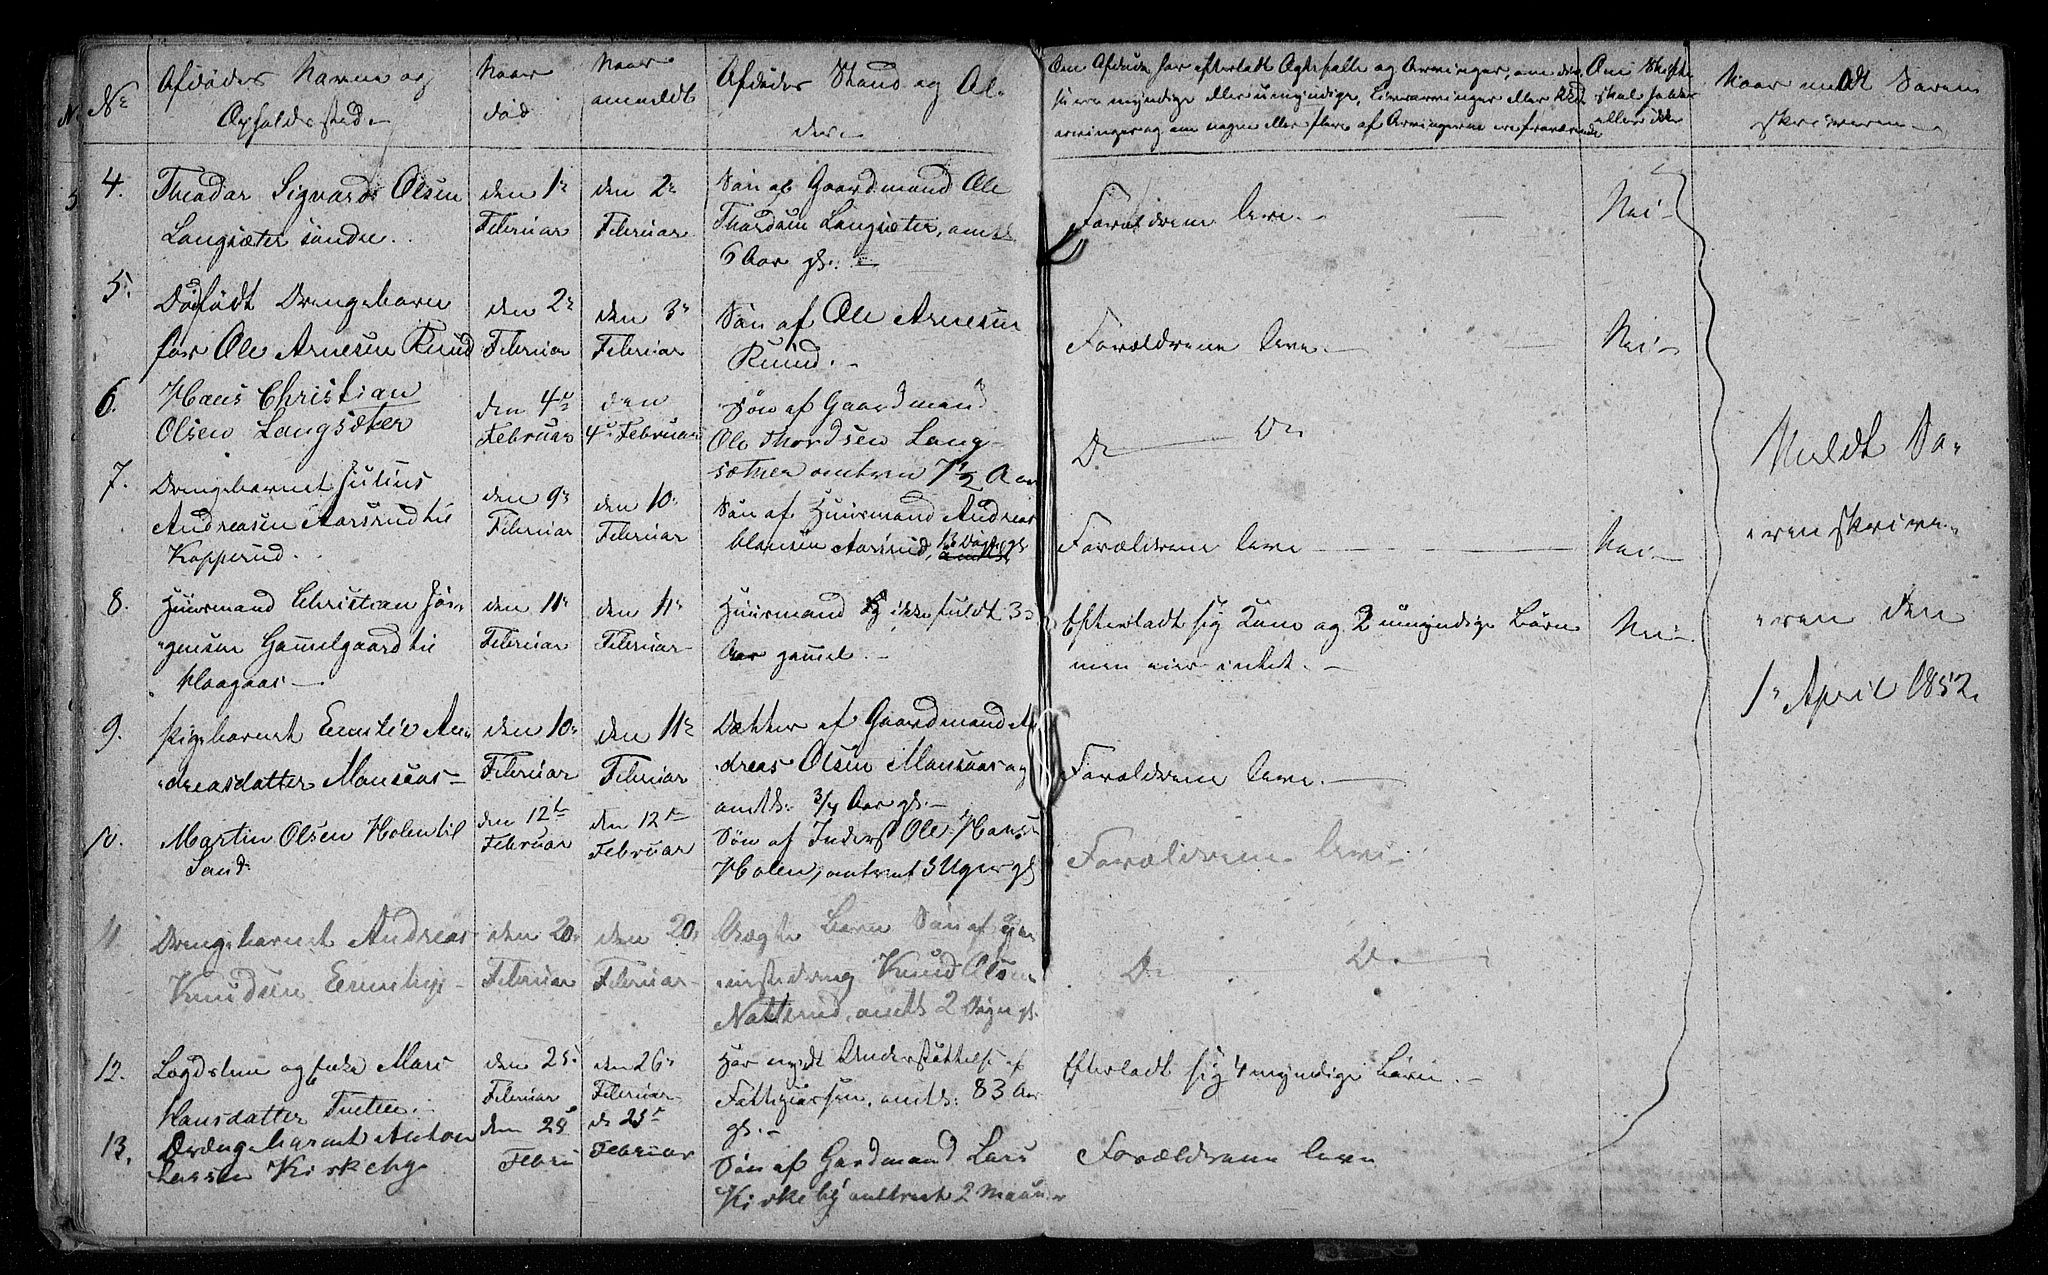 No
Afdødes Navne og
Opholdssted.
Naar
død
Naar
anmeldt
Afdødes Stand og Al-
der.
Om Afdøde har efterladt Ægtefælle og Arvinger, om disse
ere myndige eller umyndige, Livsarvinger eller
arvinger og om nogen eller flere af Arvingerne ere fraværende
Om Skifte
skal holdes
eller ikke
Naar meldt Soren
skriveren
4.
Theodor Sigvard Olsen
Langsæter søndre.
den 1ste
Februar
den 2den
Februar
Søn af Gaardmand Ole
Thordsen Langsæter, omtr.
6 Aar gl.
Forældrene leve.
Nei
5.
Dødfødt Drengebarn
for Ole Arnesen Ruud
den 2
Februar
den 3
Februar
Søn af Ole Arnesen
Ruud.
Forældrene leve.
Nei
6.
Hans Christian
Olsen Langsæter
den 4de
Februar
den
4de Februar
Søn af Gaardmand
Ole Thordsen Lang-
sæther omtren 7 1/2 Aar
Do Do
7.
Drengebarnet Julius
Andreasen Aarsrud til
Kopperud.
den 9
Februar
den 10
Februar
Søn af Huusmand Andreas
Aarsrud, 13 Dage gl
Forældrene leve
Nei
8.
Huusmand Christian Jør-
gensen Gammelgaard til
Haagaas
den 11
Februar
den 11
Februar
Huusmand ikke fuldt 30
Aar gamel.
Efterladt sig Kone og 2 umyndige Børn
men eier intet.
Nei
9.
Pigebarnet Emilie An-
dreasdatter Monsaas
den 10
Februar
den 11
Februar
Datter af Gaardmand An
dreas Olsen Monsaas og
omtr. 3/4 Aar gl.
Forældrene leve.
10.
Martin Olsen Holen til
Sand
den 12te
Februar
den 12te
Februar
Søn af Inderst Ole Hans
Holen, omtrent 3 Uger gl
Forældrene leve
11
Drengebarnet Andreas
Knudsen
den 20
Februar
den 20
Februar
Uægte Barn Søn af Tje-
nestedreng Knud Olsen
Natterud, omtr. 2 Døgn gl.
Do Do
12.
Lægdslem og Enke Mari
Hansdatter
den 25
Februar
den 26
Februar
Har nydt Understøttelse af
Fattigcassen, omtr. 83 Aar
gl.
Efterladt sig 4 myndige Børn.
13.
Drengebarnet Anton
Larsen Kirkeby
den 25
Febru
d 25
Februar
Søn af Gardmand Lars
Kirkeby omtrent 2 Maaner
Forældrene leve
Meldt So-
renskrive-
ren den
1 April 1852.